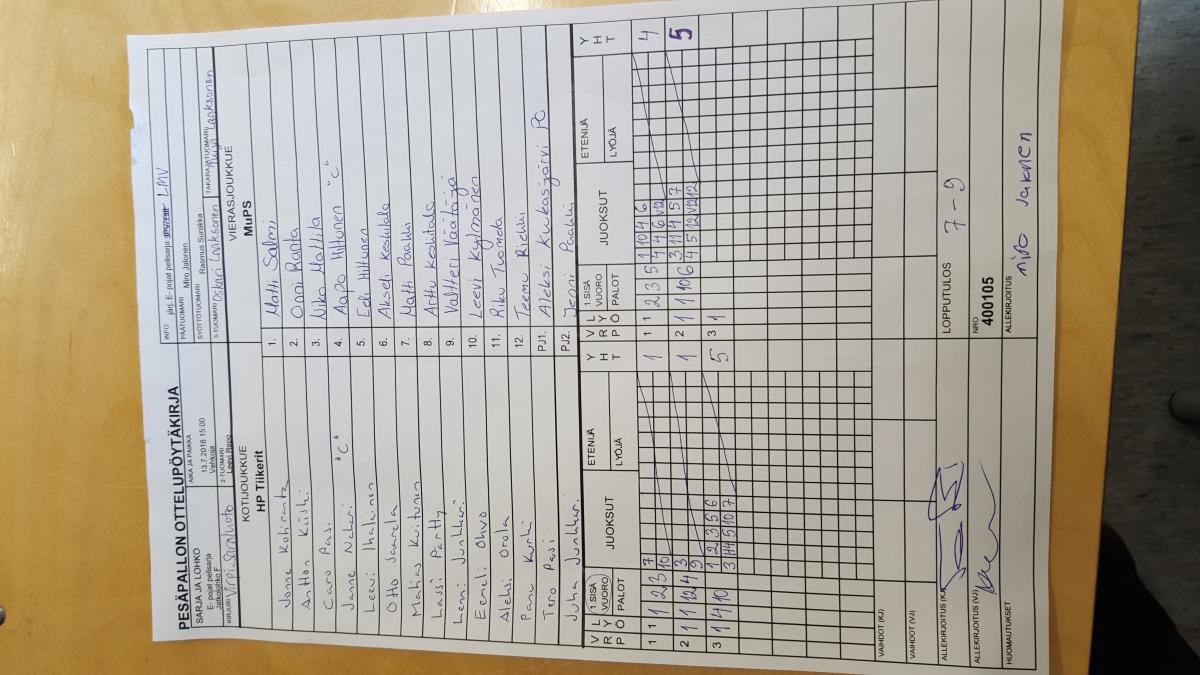 PESÄPALLON OTTELUPÖYTÄKIRJA
SARJA JA LOHKO
E- pojat pelisarja
Jatkolohko F
AIKA JA PAIKKA
13.7.2016 15:00
Vehkoja
INFO järj. E- pojat pelisarja LMV
PÄÄTUOMARI Miro Jalonen
SYÖTTÖTUOMARI Rasmus Suraikka
KIRJURI Virpi
2-TUOMARI Leevi Repo
3-TUOMARI Oskari Laaksonen
TAKARAJATUOMARI Laaksonen
KOTIJOUKKUE
HP Tiikerit
VIERASJOUKKUE
MuPS
Jonne Kotiranta 1. Matti Salmi
Anttoni Kiiski 2. Onni Ranta
Caro Pasi 3. Niko Mattila
Janne "C" 4. Aapo Hiltunen "C"
Leevi Ihalainen 5. Eeli Hiltunen
Otto Saarela 6. Akseli Keskitalo
Matias Kuitunen 7. Matti Paakki
Lassi Pantty 8. Arttu Keskitalo
Leevi Junkkari 9. Valtteri Väätäjä
Eemeli Ohvo 10. Leevi Kylmänen
Aleksi Orola 11. Riku Tuomela
Panu Kurki 12. Teemu Riekki
Tero Pasi PJ1. Aleksi Kukasjärvi PC
Juha Junkkari PJ2. Jenni Paakki
V R P L Y Ö 1.SISÄ VUORO PALOT JUOKSUT ETENIJÄ LYÖJÄ Y H T V R P L Y Ö 1.SISÄ VUORO PALOT JUOKSUT ETENIJÄ LYÖJÄ Y H T
1 1 1 2 3 7 10 1 1 1 2 3 5 1 10 4 6 4 4 6 V12 4
2 1 1 12 4 3 9 1 2 1 1 10 6 3 11 4 5 7 4 5 12 V12 12 5
3 1 4 10 1 2 3 5 6 3 4 5 10 7 5 3 1
VAIHDOT (KJ)
VAIHDOT (VJ)
ALLEKIRJOITUS (KJ) LOPPUTULOS 7 - 9
ALLEKIRJOITUS (VJ) NRO 400105
HUOMAUTUKSET ALLEKIRJOITUS Miro Jalonen